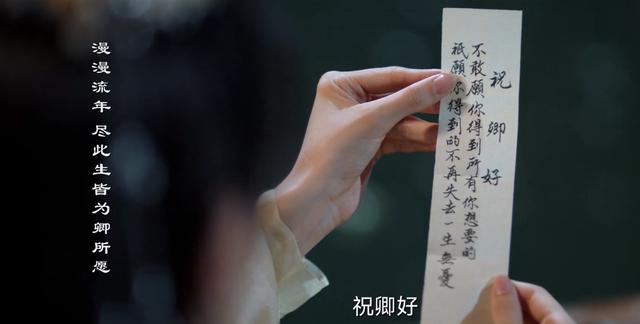 漫漫流年 尽此生皆为卿所愿
祝卿好
不敢願你得到所有你想要的
祇願你得到的不再失去一生無憂
祝卿好